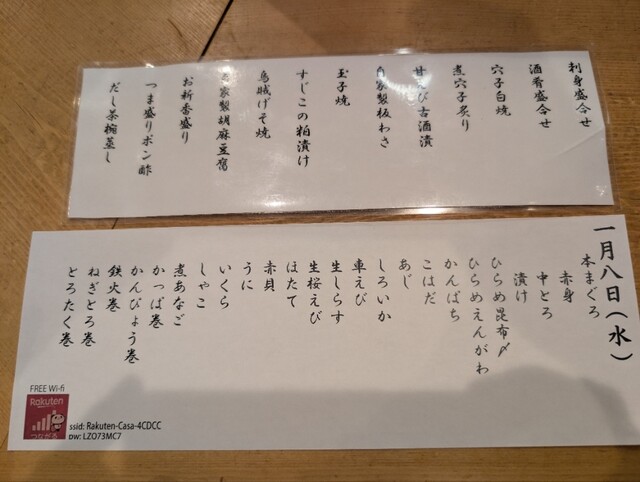 刺身盛合せ
酒肴盛合せ
穴子白焼
煮穴子炙り
甘えび古酒漬
自家製板わさ
玉子焼
すじこの粕漬け
烏賊げそ焼
自家製胡麻豆腐
お新香盛り
つま盛りポン酢
だし茶椀蒸し
一月八日(水)
本まぐろ
赤身
中とろ
漬け
ひらめ昆布〆
ひらめえんがわ
かんぱち
こはだ
あじ
しろいか
車えび
生しらす
生桜えび
ほたて
赤貝
うに
いくら
しゃこ
煮あなご
かっぱ巻
かんぴょう巻
鉄火巻
ねぎとろ巻
とろたく巻
FREE Wi-fi
Rakuten
つながる
ssid: Rakuten-Casa-4CDCC
pw: LZO73MC7